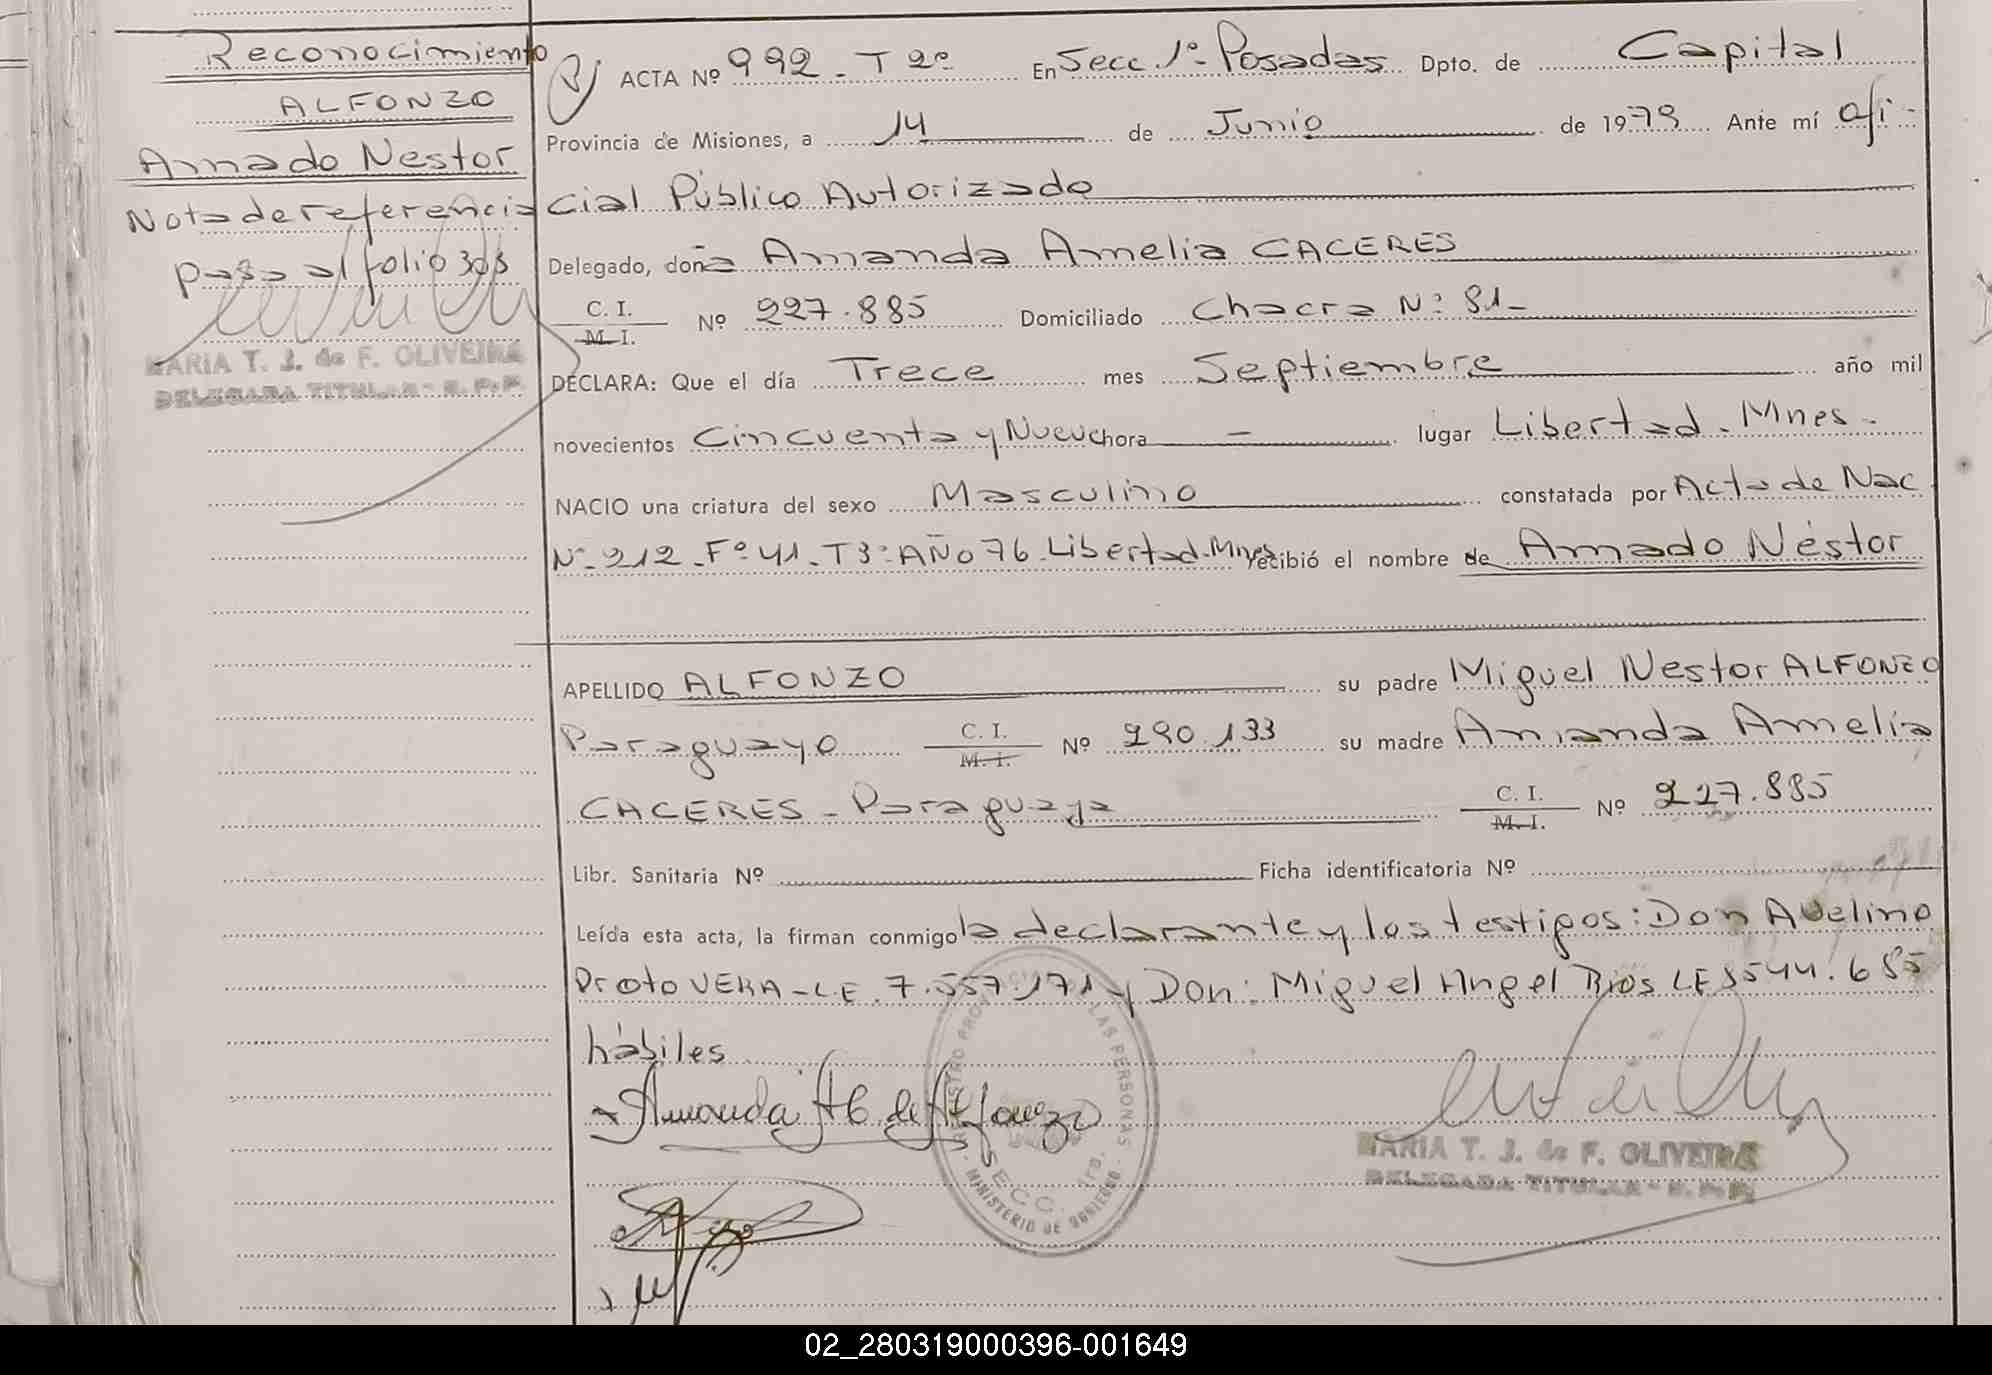 Reconocimiento
ALFONZO
Amado Nestor
Nota de referencia
pasa al folio 303
MARIA T. J. de F. OLIVEIRA
DELEGADA TITULAR - R. P. P.
ACTA Nº 992 - T 2º En Secc 1º - Posadas Dpto. de Capital
Provincia de Misiones, a 14 de Junio de 1979 Ante mí Ofi-
cial Público Autorizado
Delegado, doña Amanda Amelia CACERES
C. I.
M. I. Nº 227.885 Domiciliado Chacra Nº 81-
DECLARA: Que el día Trece mes Septiembre año mil
novecientos Cincuenta y Nueve hora - lugar Libertad - Mnes -
NACIO una criatura del sexo Masculino constatada por Acta de Nac.
Nº 212 - Fº 41 - T 3º - AÑO 76 - Libertad - Mnes recibió el nombre de Amado Néstor
APELLIDO ALFONZO su padre Miguel Nestor ALFONZO
Paraguayo C. I.
M. I. Nº 290.133 su madre Amanda Amelia
CACERES - Paraguaya C. I.
M. I. Nº 227.885
Libr. Sanitaria Nº Ficha identificatoria Nº
Leída esta acta, la firman conmigo la declarante y los testigos: Don Avelino
Proto VERA - L.E. 7.557.171 y Don: Miguel Angel Rios LE 8544.685
hábiles
Amanda A C de Alfonzo
REGISTRO PROV LAS PERSONAS
SECC. 1ra.
MINISTERIO DE GOBIERNO
MARIA T. J. de F. OLIVEIRA
DELEGADA TITULAR - R. P. P.
02_280319000396-001649